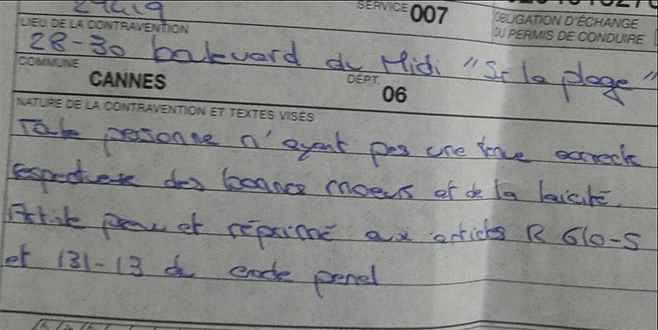 SERVICE 007
OBLIGATION D'ÉCHANGE
DU PERMIS DE CONDUIRE
LIEU DE LA CONTRAVENTION
28-30 boulevard du Midi "Sr la plage"
COMMUNE CANNES DÉPT. 06
NATURE DE LA CONTRAVENTION ET TEXTES VISÉS
Toute personne n'ayant pas une tenue correcte
respectueuse des bonnes moeurs et de la laicité.
Article prévu et réprimé aux articles R 610-5
et 131-13 du code penal